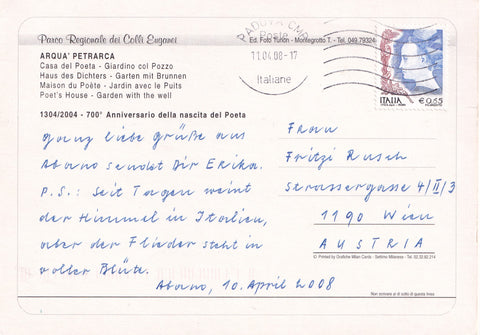 Parco Regionale dei Colli Euganei
Ed. Foto Turich - Montegrotto T. - Tel. 049.79324
ARQUA' PETRARCA
Casa del Poeta - Giardino col Pozzo
Haus des Dichters - Garten mit Brunnen
Maison du Poète - Jardin avec le Puits
Poet's House - Garden with the well
1304/2004 - 700° Anniversario della nascita del Poeta
PADOVA CMP
Poste
11.04.08-17
Italiane
ITALIA
€ 0,65
ganz liebe Grüße aus
Abano sendet Dir Erika.
P.S.: Seit Tagen weint
der Himmel in Italien,
aber der Flieder steht in
voller Blüte.
Abano, 10. April 2008
Frau
Fritzi Rusch
Strassergasse 4/II/3
1190 Wien
AUSTRIA
© Printed by Grafiche Milan Cards - Settimo Milanese - Tel. 02.33.92.214
Non scrivere al di sotto di questa linea